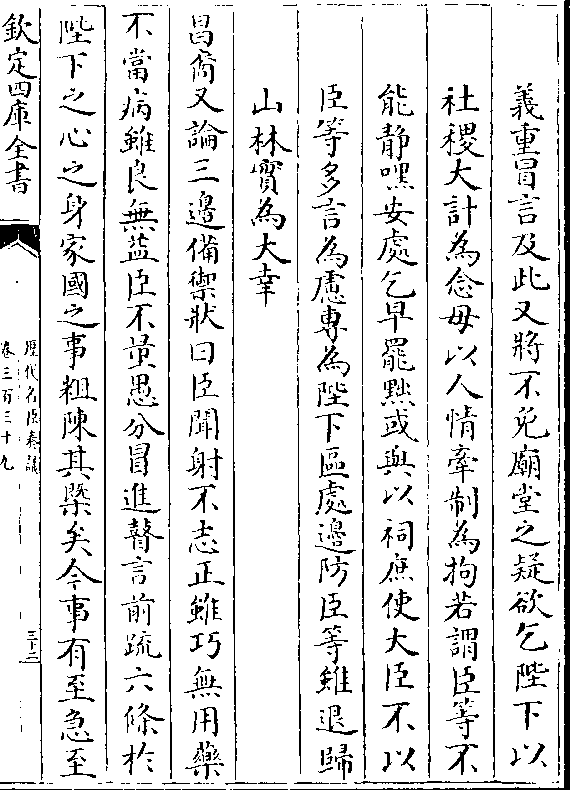 義重冒言及此又將不免廟堂之疑欲乞陛下以
社稷大計為念毋以人情牽制為拘若謂臣等不
能静嘿安處乞早罷黜或與以祠庶使大臣不以
臣等多言為慮專為陛下區處邊防臣等雖退歸
山林實為大幸
昌裔又論三邊備禦狀曰臣聞射不志正雖巧無用藥
不當病雖良無益臣不量愚分冒進瞽言前疏六條於
陛下之心之身家國之事粗陳其槩矣今事有至急至
欽定四庫全書
歷代名臣奏議
卷三百三十九
三十二